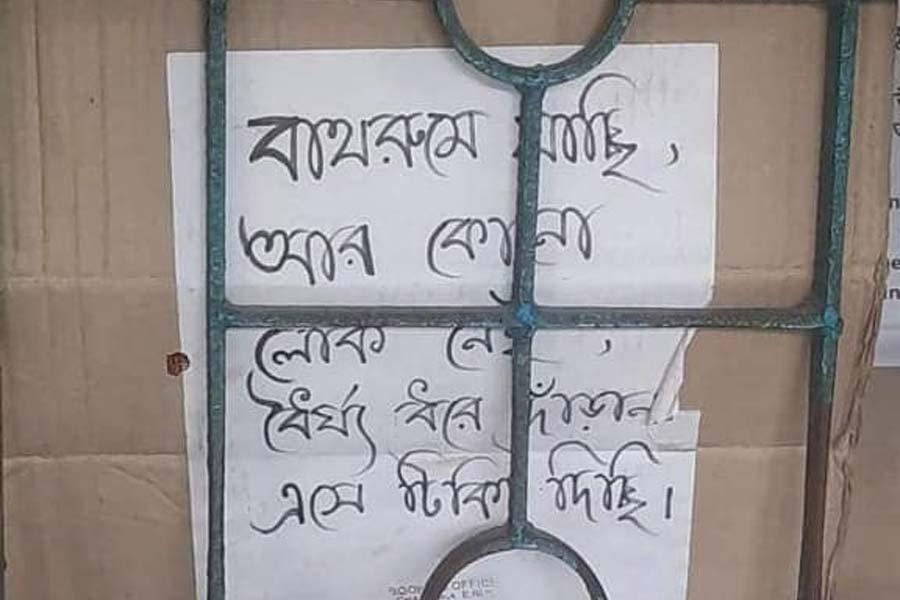 বাথরুমে যাচ্ছি,
আর কোনো
লোক নেই,
ধৈর্য্য ধরে দাঁড়ান
এসে টিকিট দিচ্ছি।
OFFICE